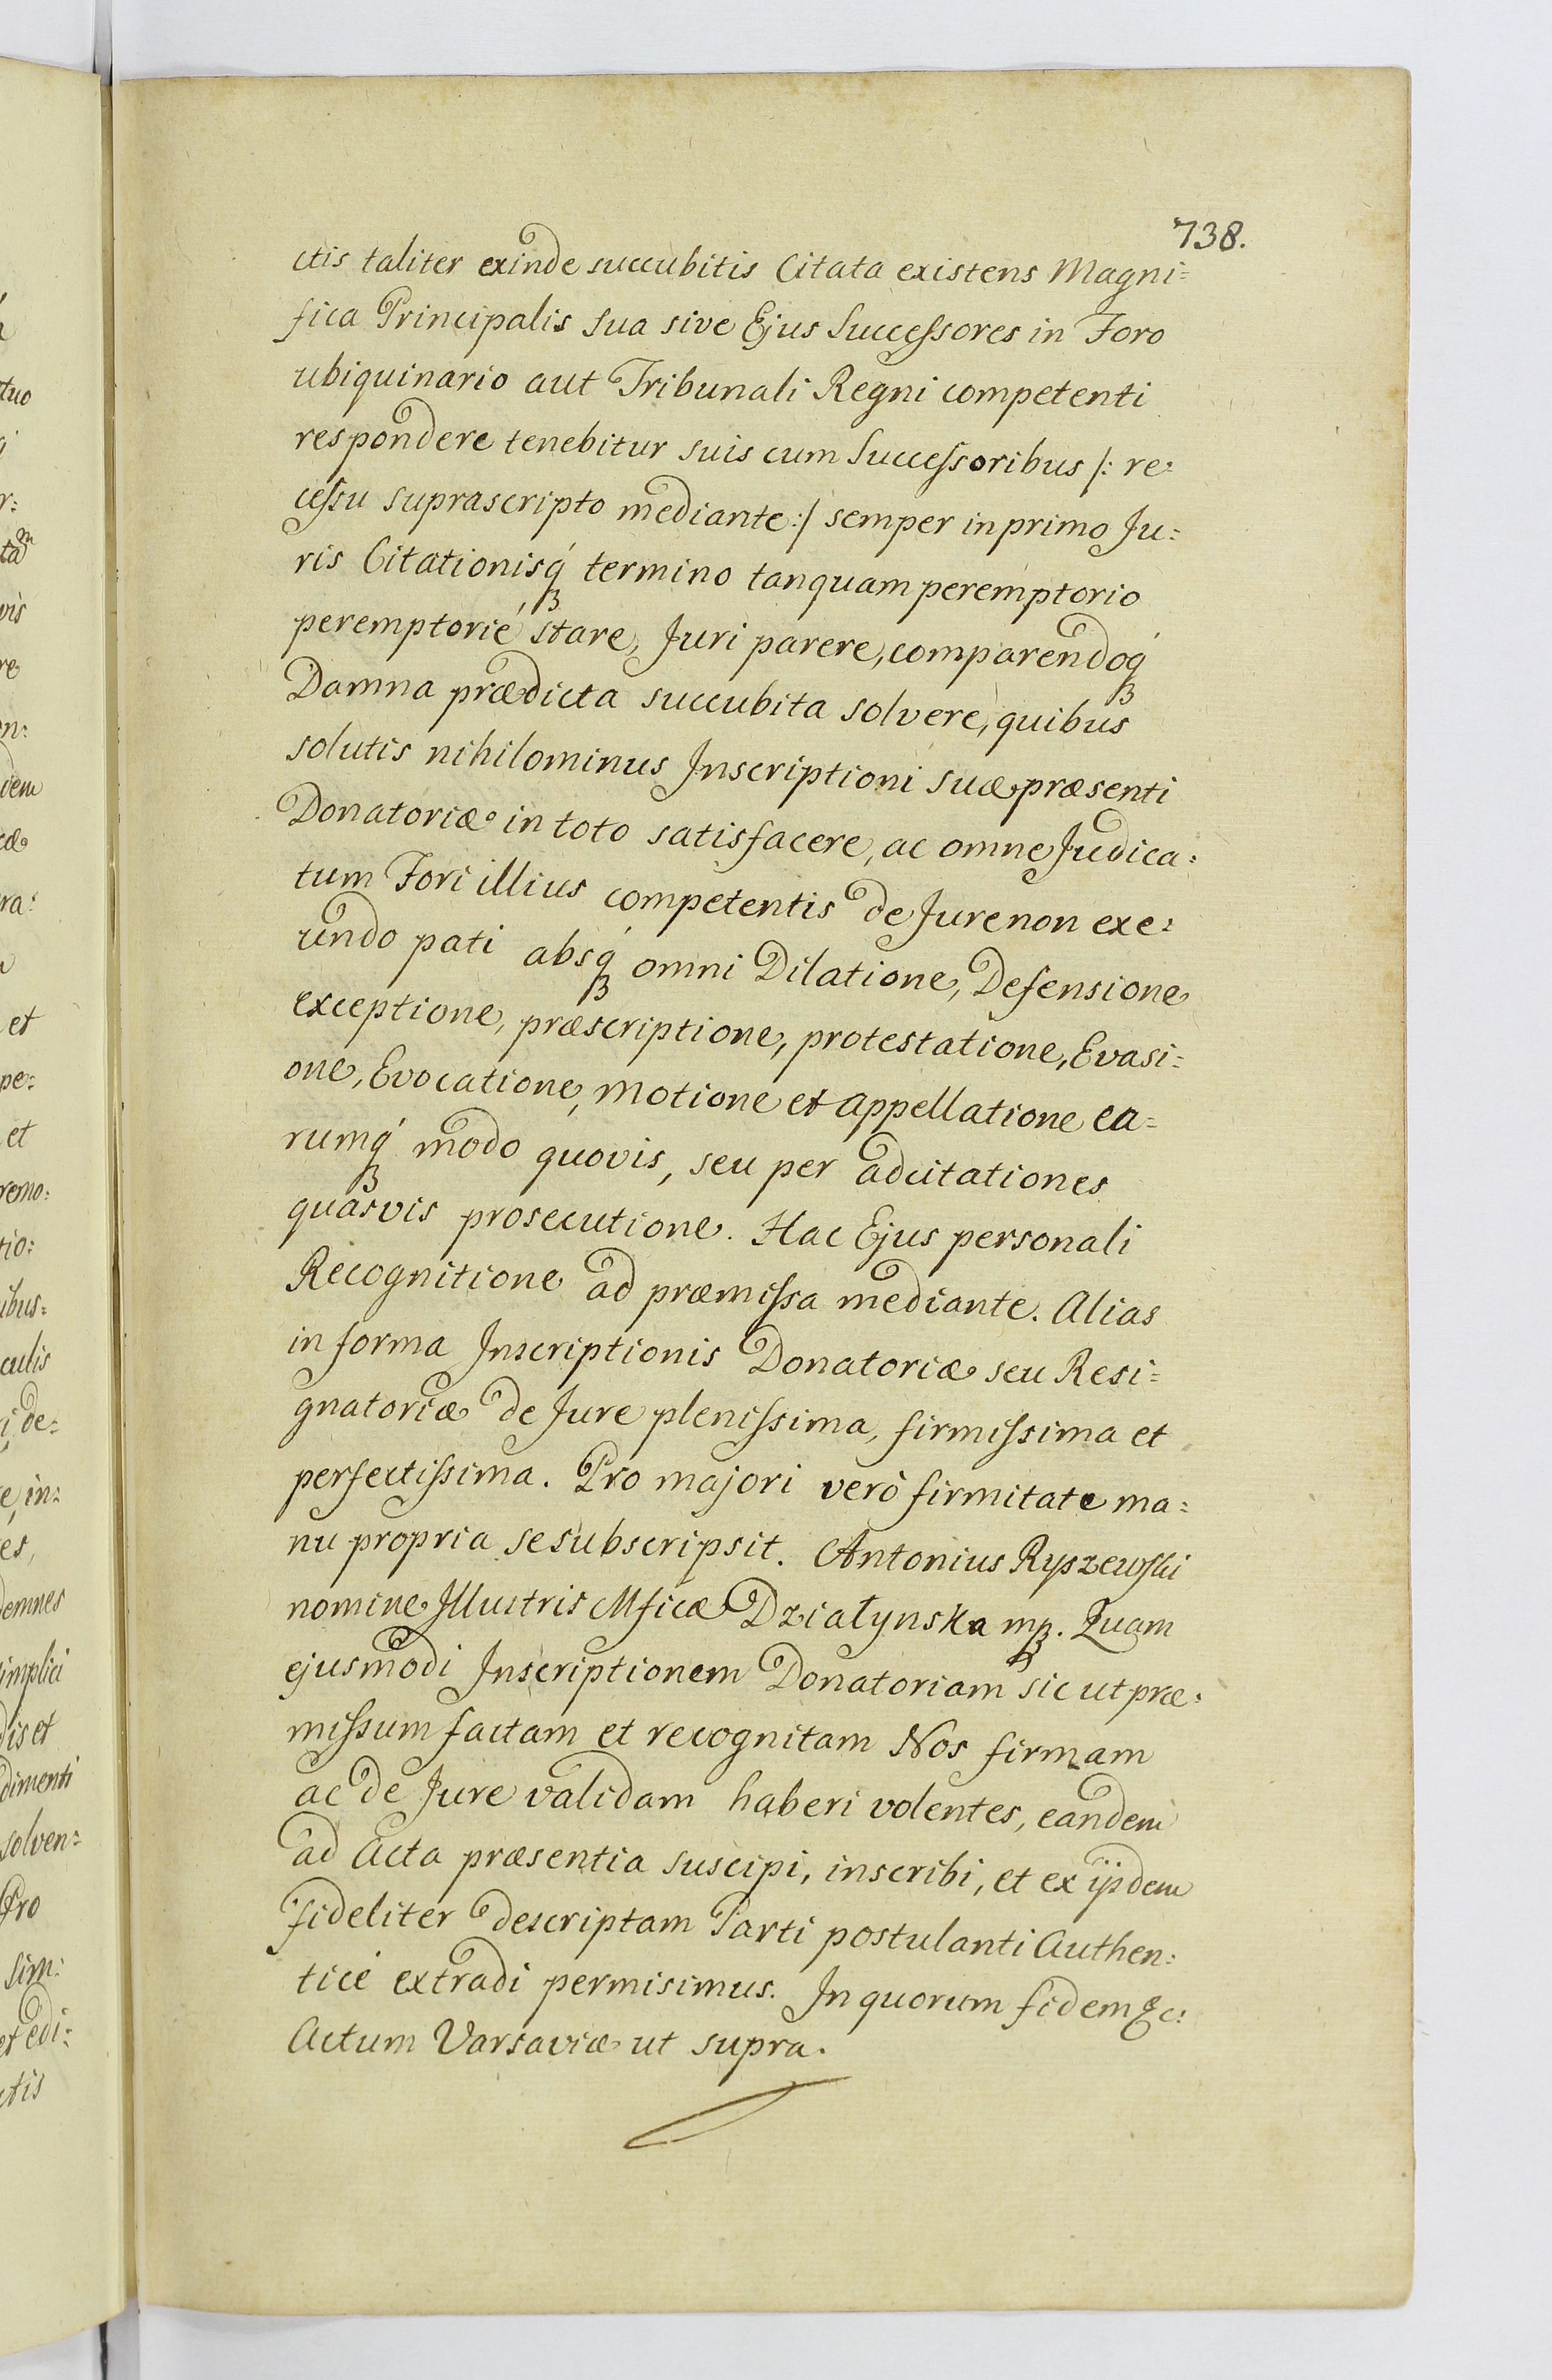 738.
ctis taliter exinde succubitis Citata existens Magni=
fica Principalis Sua sive Ejus Successores in Foro
ubiquinario aut Tribunali Regni competenti
respondere tenebitur suis cum Successoribus /: re=
cessu suprascripto mediante :/ semper in primo Ju=
ris Citationisq́ꝫ termino tanquam peremptorio
peremptorié stare, Juri parere, comparendoq́ꝫ
Damna prædicta succubita solvere, quibus
solutis nihilominus Inscriptioni suæ præsenti
Donatoriæ in toto satisfacere, ac omne Judica=
tum Fori illius competentis de Jure non exe=
undo pati absq́ꝫ omni Dilatione, Defensione
exceptione, præscriptione, protestatione, Evasi=
one, Evocatione, Motione et Appellatione ea=
rumq́ꝫ modo quovis, seu per adcitationes
quasvis prosecutione. Hac Ejus personali
Recognitione ad præmissa mediante. Alias
in forma Inscriptionis Donatoriæ seu Resi=
gnatoriæ de Jure plenissima, firmissima et
perfectissima. Pro majori verò firmitate ma=
nu propria se subscripsit. Antonius Ryszewski
nomine Illustris Mficæ Działynska mp. Quam
ejusmodi Inscriptionem Donatoriam sic ut præ=
missum factam et recognitam Nos firmam
ac de Jure validam haberi volentes, eandem
ad Acta præsentia suscipi, inscribi, et ex ijsdem
fideliter descriptam Parti postulanti Authen=
ticé extradi permisimus. In quorum fidem &c:
Actum Varsaviæ ut supra.